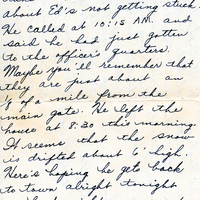 about Ed's not getting stuck.
He called at 10:15 A.M. and
said he had just gotten
to the officer' quarters.
Maybe you'll remember that
they are just about an
⅛ of a mile from the
main gate. He left the
house at 8:30 this morning.
It seems that the snow
is drifted about 6' high.
Here's hoping he gets back
to town alright tonight